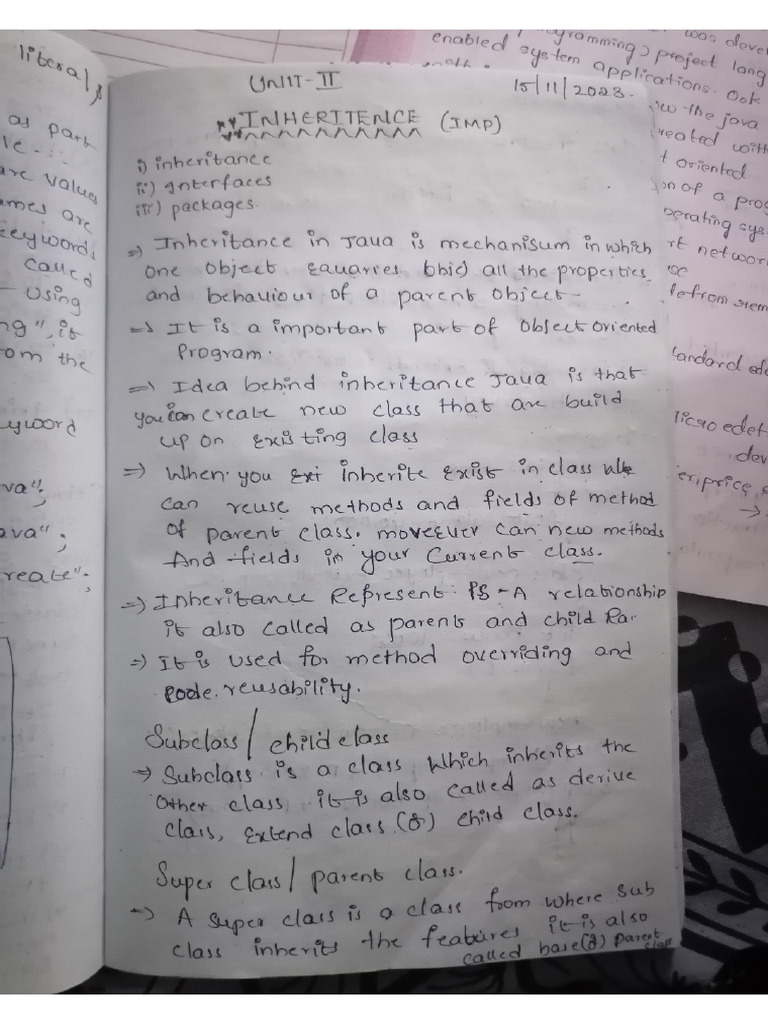 literal,
as part
ve.
are values
ames are
keywords
called
using
ng", it
om the
yword
va";
ava";
reate";
UNIT-II
15/11/2023.
INHERITENCE (IMP)
i) inheritance
ii) Interfaces
iii) packages.
=> Inheritance in Java is mechanisum in which
one object all the properties
and behaviour of a parent object-
=> It is a important part of Object Oriented
Program.
=> Idea behind inheritance Java is that
you can create new class that are build
up on existing class
=> When you inherite exist in class
can reuse methods and fields of method
of parent class. moveever can new methods
And fields in your Current class.
=> Inheritance Represent IS-A relationship
it also called as parents and child Rar
=> It is used for method overriding and
code reusability.
Subclass/ child class
=> Subclass is a class which inherits the
Other class it is also called as derive
class, extend class (or) child class.
Super class/ parent class.
=> A super class is a class from where sub
class inherits the features it is also
called base(or) parent
class
was devel
ogramming) project lang
enabled system applications. Ook
the java
reated with
t oriented
on of a prog
perating sys
rt network
tandard ede
micro edet
dev
er, price,